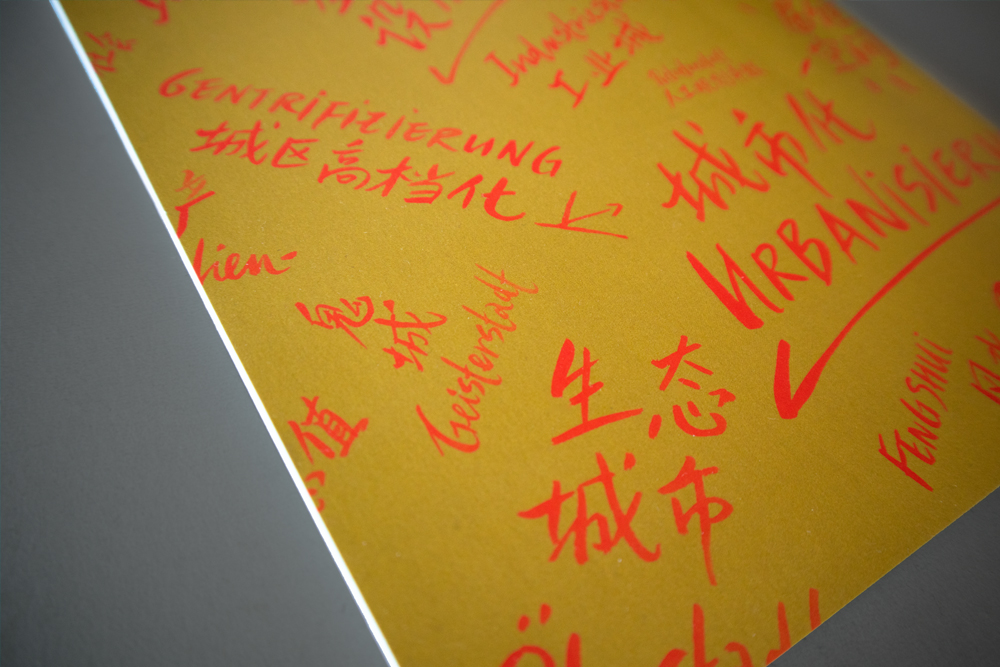 设
Industriestadt
工业城
GENTRIFIZIERUNG
城区高档化
城市化
URBANISIERU
lien-
鬼城
Geisterstadt
生态
城市
FENGSHUI
值
Ökostadt